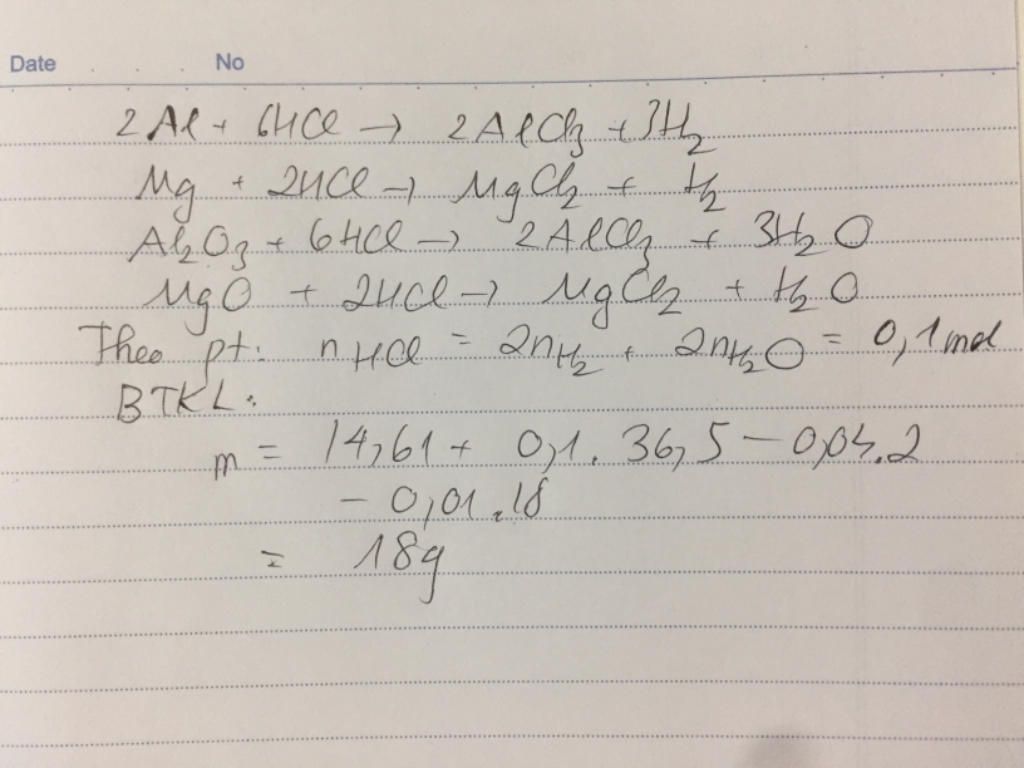 Date No
2Al + 6HCl → 2AlCl₃ + 3H₂
Mg + 2HCl → MgCl₂ + H₂
Al₂O₃ + 6HCl → 2AlCl₃ + 3H₂O
MgO + 2HCl → MgCl₂ + H₂O
Theo pt: nHCl = 2nH₂ + 2nH₂O = 0,1 mol
BTKL:
m = 14,61 + 0,1. 36,5 – 0,04.2
– 0,01.18
= 18g